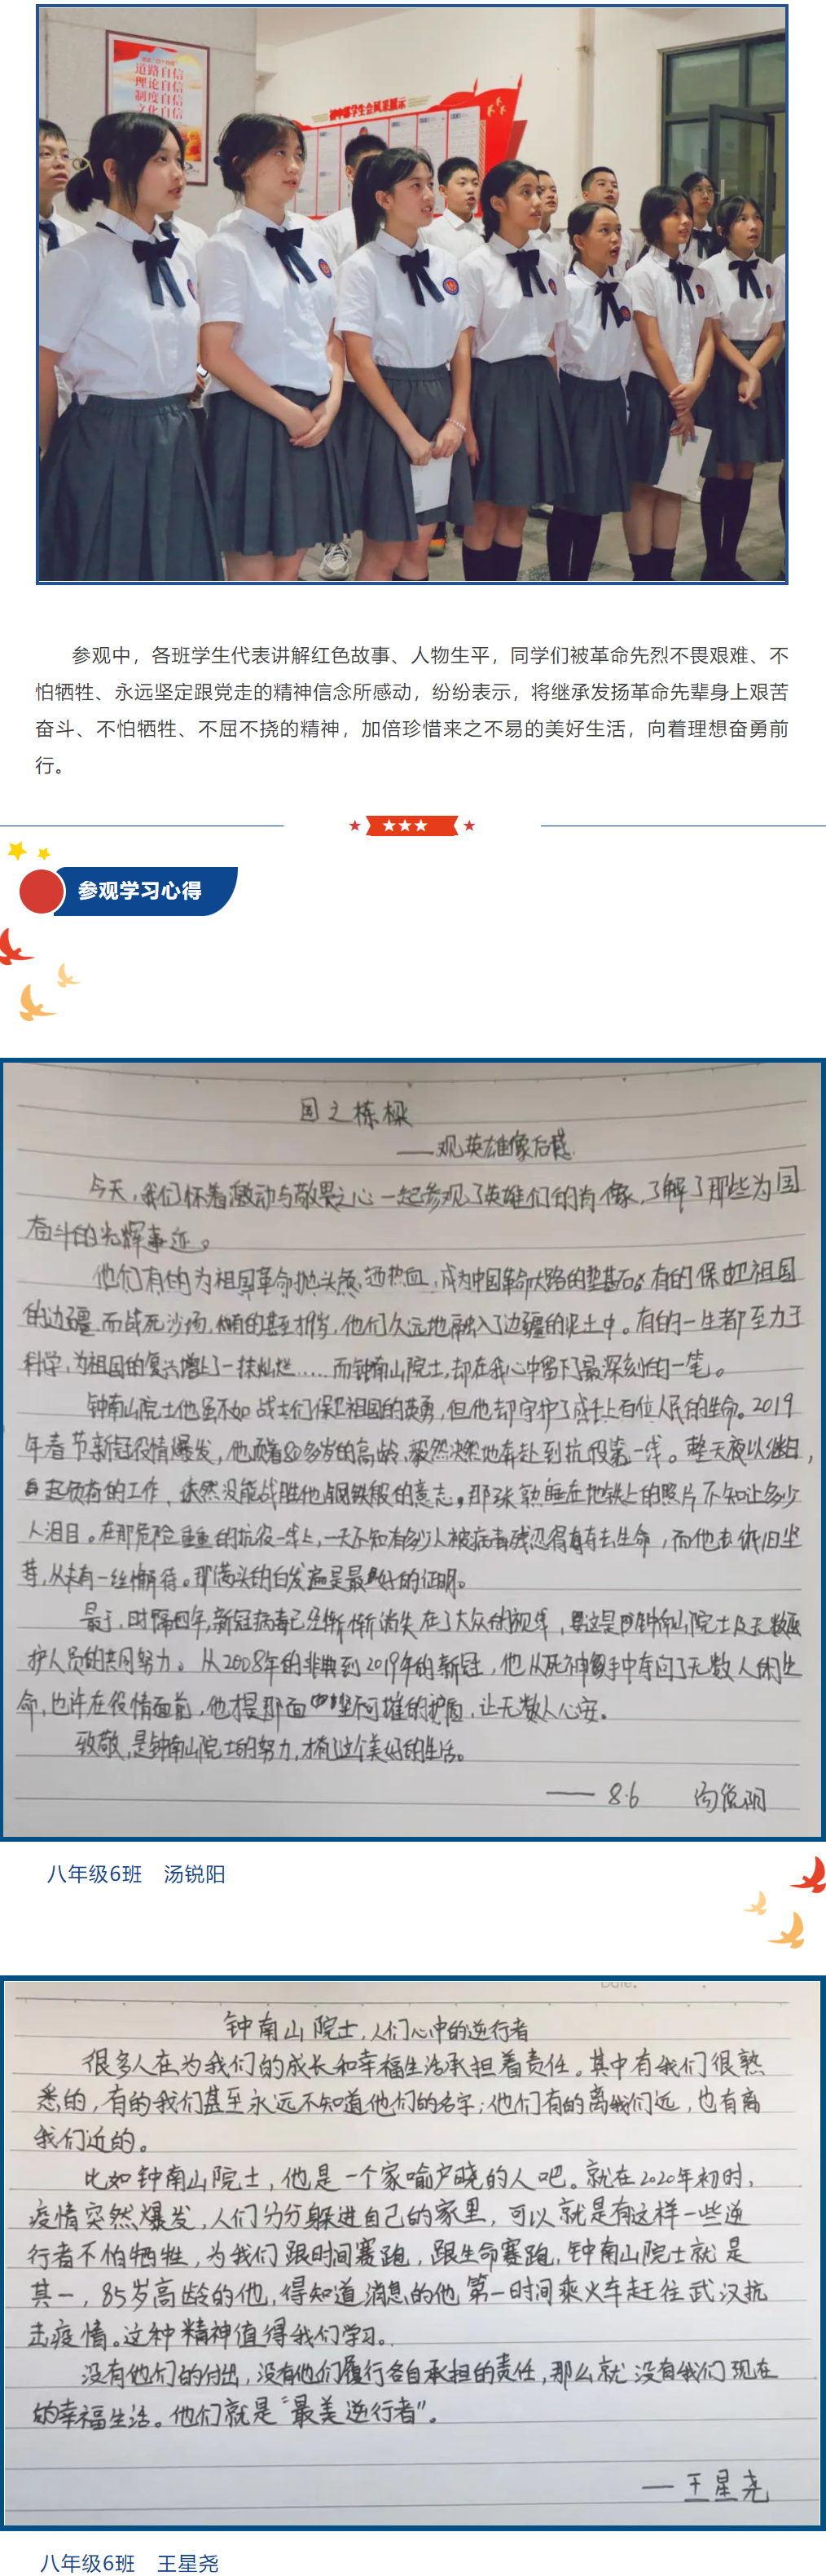 道路自信
理论自信
制度自信
文化自信
初中部学生会风采展示
参观中，各班学生代表讲解红色故事、人物生平，同学们被革命先烈不畏艰难、不
怕牺牲、永远坚定跟党走的精神信念所感动，纷纷表示，将继承发扬革命先辈身上艰苦
奋斗、不怕牺牲、不屈不挠的精神，加倍珍惜来之不易的美好生活，向着理想奋勇前
行。
参观学习心得
国之栋樑
——观英雄像后感
今天，我们怀着激动与敬畏之心一起参观了英雄们的肖像，了解了那些为国
奋斗的光辉事迹。
他们有的为祖国革命抛头颅，洒热血，成为中国革命大路的垫基石；有的保卫祖国
的边疆，而战死沙场，他们久远地融入了边疆的泥土中。有的一生都至力于
科学，为祖国的复兴增上了一抹灿烂……而钟南山院士，却在我心中留下了最深刻的一笔。
钟南山院士他虽不如战士们保卫祖国的英勇，但他却守护了成千上百位人民的生命。2019
年春节新冠役情爆发，他顶着80多岁的高龄，毅然决然地奔赴到抗役第一线。整天夜以继日，
的工作，依然没能战胜他钢铁般的意志。那张熟睡在地铁上的照片不知让多少
人泪目。在那危险重重的抗役一线上，一天不知有多少人被病毒残忍得夺去生命，而他去依旧坚
持，从未有一丝懈待。那满头的白发便是最好的证明。
最于，时隔四年，新冠病毒已经渐渐消失在了大众的视线，这是钟南山院士及无数医
护人员的共同努力。从2008年的非典到2019年的新冠，他从死神手中夺回了无数人的生
命，也许在役情面前，他才是那面坚不可摧的护盾，让无数人心安。
致敬，是钟南山院士的努力，才有了这个美好的生活。
—— 8.6
八年级6班 汤锐阳
Date.
钟南山院士，人们心中的逆行者
很多人在为我们的成长和幸福生活承担着责任。其中有我们很熟
悉的，有的我们甚至永远不知道他们的名字；他们有的离我们远，也有离
我们近的。
比如钟南山院士，他是一个家喻户晓的人吧。就在2020年初时，
疫情突然爆发，人们分分躲进自己的家里，可以就是有这样一些逆
行者不怕牺牲，为我们跟时间赛跑，跟生命赛跑，钟南山院士就是
其一，85岁高龄的他，得知道消息的他第一时间乘火车赶往武汉抗
击疫情。这种精神值得我们学习。
没有他们的付出，没有他们履行各自承担的责任，那么就没有我们现在
的幸福生活。他们就是“最美逆行者”。
—王星尧
八年级6班 王星尧